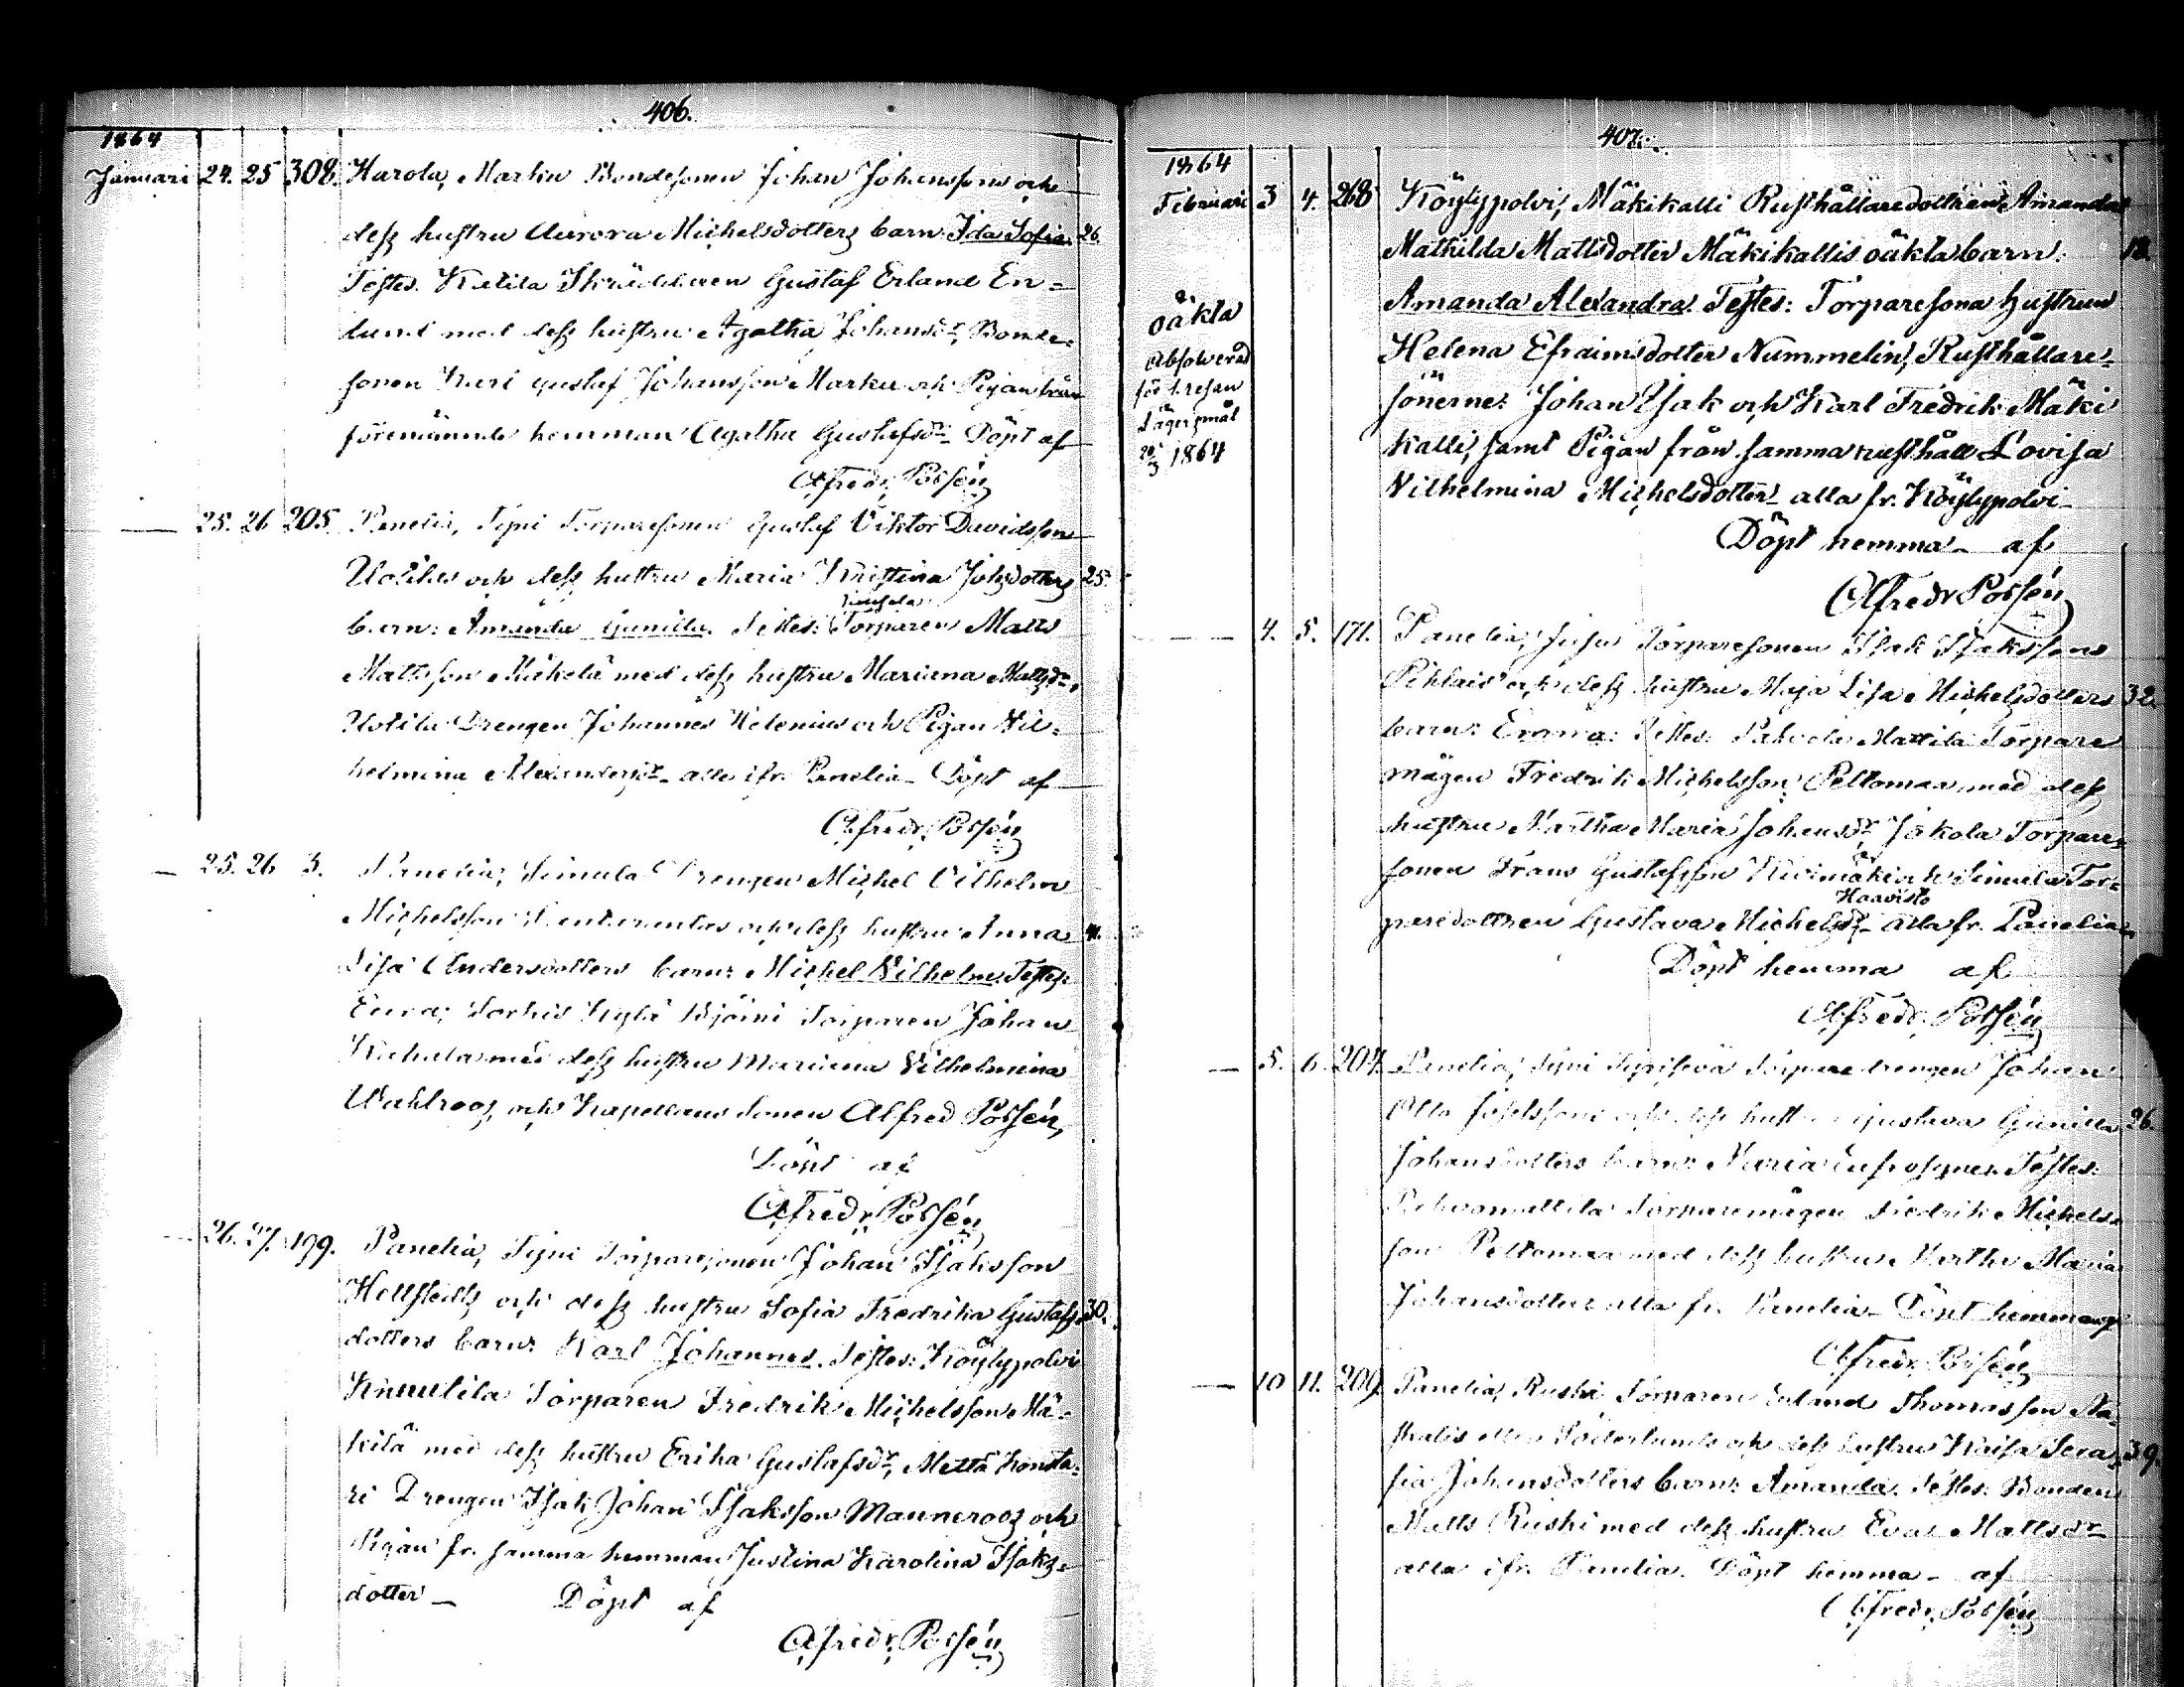 406.
1864
Januari 24. 25 308. Harola, Marku Bondesonen Johan Johanssons och
dess hustru Aurora Michelsdotters barn: Ida Sofia. 26.
Testes. Gustaf Erland En=
lund med dess hustru Agatha Johansdr, Bonde=
sonen Karl Gustaf Johansson Marku och Pigan från
förenämnde hemman Agatha Gustafsdr_ Döpt af
Alfredr Possén
25. 26 205. Panelia, Tyni Torparesonen Gustaf Viktor Davidsson
Uotilas och dess hustru Maria Kristina Johsdotters 25.
barn: Amanda Gunilla. Testes: Torparen Matts
Mattsson Mickelä med dess hustru Mariana Mattsdr,
Uotila Drengen Johannes Helenius och Pigan Vil=
helmina Alexandersdr_ alla ifr. Panelia_ Döpt af
Alfredr Possén
25. 26 3. Panelia, Simula Drengen Michel Vilhelm
Michelsson och dess hustru Anna 41.
Lisa Andersdotters barn: Michel Vilhelm. Testes:
Eura, Sorkis Kylä Björni Torparen Johan
med dess hustru Mariana Vilhelmina
Wahlroos, och Kapellans Sonen Alfred Possén,
Döpt af
Alfredr Possén
26. 27. 199. Panelia, Tyni Torparesonen Johan Isaksson
Hellstedts och dess hustru Sofia Fredrika Gustafs= 30.
dotters barn: Karl Johannes. Testes: Köylypolvi
Knuutila Torparen Fredrik Michelsson Mä=
kilä med dess hustru Erika Gustafsdr, Mattä Konsta=
ri Drengen Isak Johan Isaksson Mauneroos och
Pigan fr. samma hemman Justina Karolina Isaks=
dotter_ Döpt af
Alfredr Possén
407.
1864
Februari 3 4. 268 Köylypolvi, Mäkikalli Rusthållaredottren Amanda
Mathilda Mattsdotter Mäkikallis oäkta barn: 18.
oäkta
Amanda Alexandra. Testes: Torparesona hustrun
Absolverad
för
Lägersmål
20/3 1864
Helena Efraimsdotter Nummelin, Rusthållare=
sönerne: Johan Isak och Karl Fredrik Mäki
kalli, samt Pigan från samma rusthåll Lovisa
Vilhelmina Michelsdotter_ alla fr. Köylypolvi_
Döpt hemma_ af
Alfredr Possén
4. 5. 171. Panelia, Torparesonen Isak Isakssons
Pihlais och dess hustru Maja Lisa Michelsdotters 32.
barn: Emma: Testes: Mattila Torpare
mågen Fredrik Michelsson Peltomaa, med dess
hustru Martha Maria Johansdr, Jokola Torpare=
sonen Frans Gustafsson Kivimäki och Simula Tor=
Haavisto
paredottren Gustava Michelsdr_ alla fr. Panelia_
Döpt hemma af
Alfredr Possén
5. 6. 204. Panelia, Tyni Torpare drengen Johan
Otto Josefssons och dess hustru Gustava Gunilla 26.
Johansdotters barn: Maria Eufrosyne. Testes:
Torparemågen Fredrik Michels=
son Peltomaa med dess hustru Martha Maria
Johansdotter alla fr. Panelia_ Döpt hemma af
Alfredr Possén
10 11. 209. Panelia, Ruski Torparen Erland Thomasson
eller Söderlunds och dess hustru Kaisa Sera= 39.
fia Johansdotters barn: Amanda. Testes: Bonden
Matts Ruski med dess hustru Eva Mattsdr_
alla ifr. Panelia. Döpt hemma_ af
Alfredr Possén